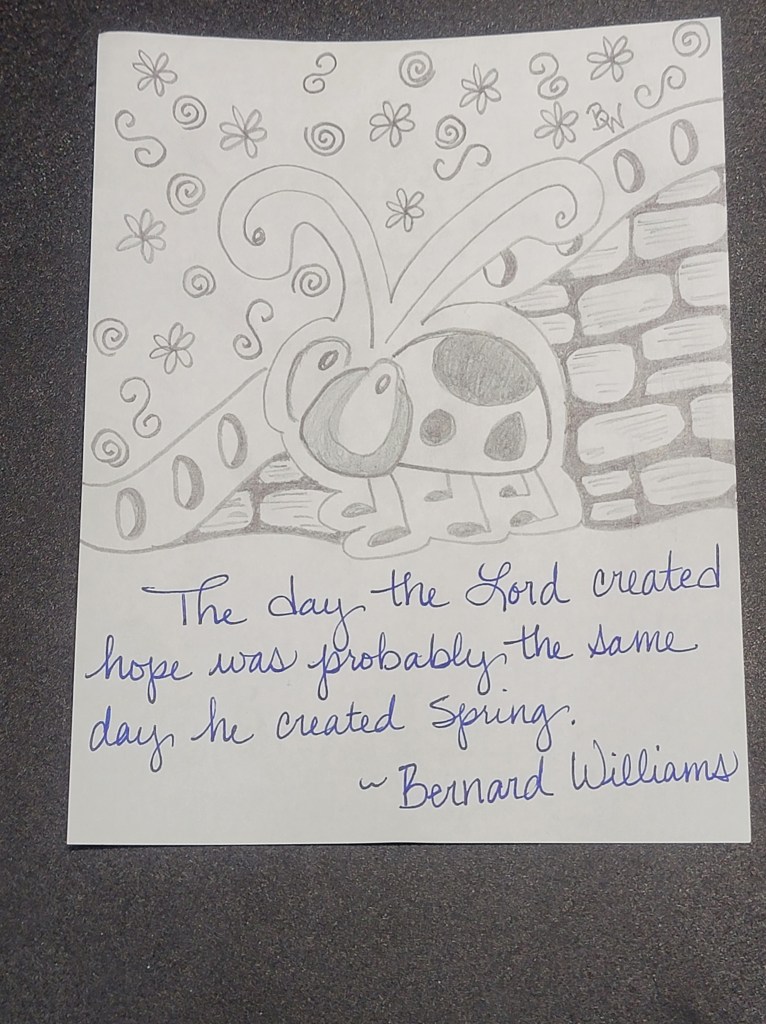 BW
The day the Lord created
hope was probably the same
day he created Spring.
~ Bernard Williams